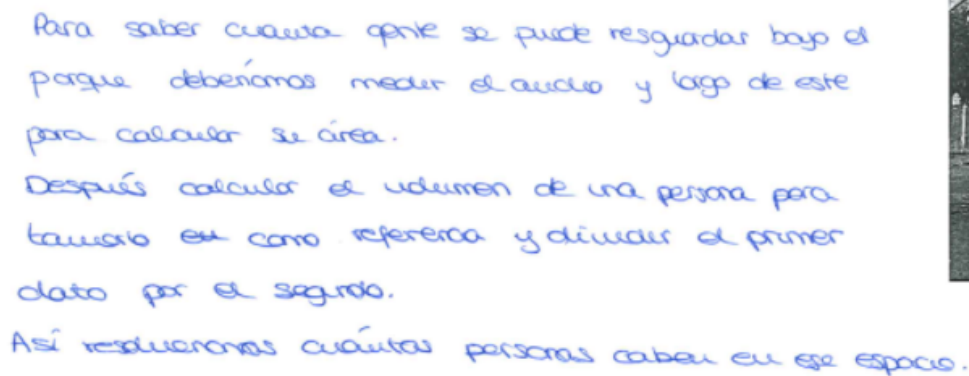 Para saber cuanta gente se puede resguardar bajo el
porque deberíamos medir el ancho y largo de este
para calcular su área.
Después calcular el volumen de una persona para
como referencia y dividir el primer
dato por el segundo.
Así resolveremos cuántas personas caben en ese espacio.